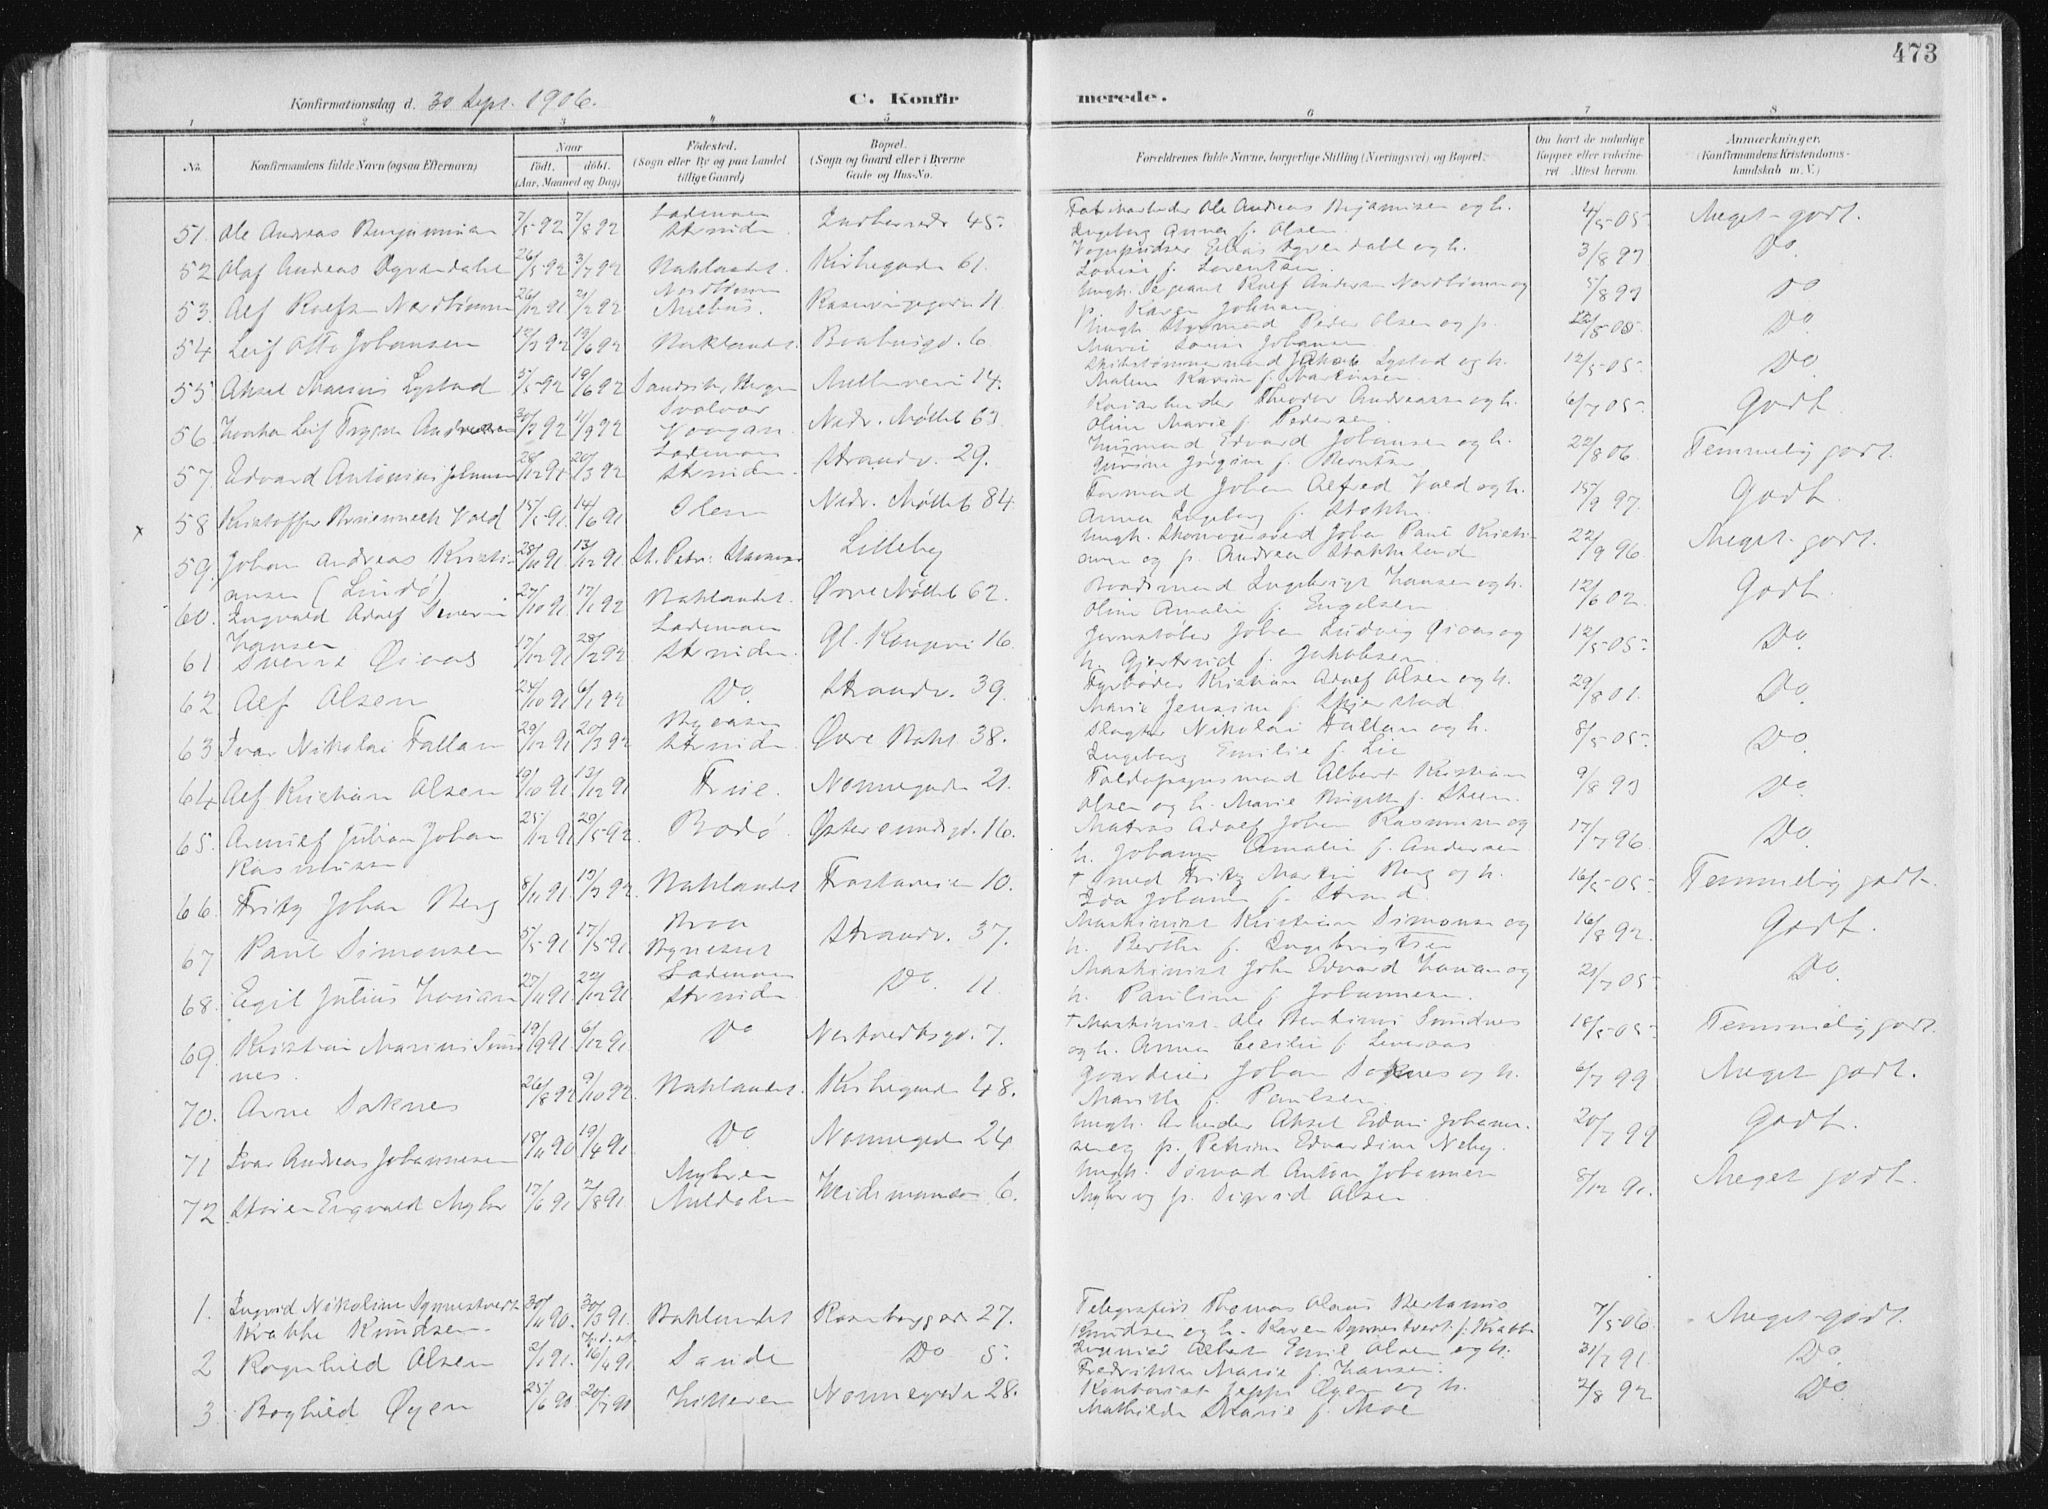 473
Konfirmationsdag d. 30 Sept. 1906. C. Konfirmerede.
1 2 3 4 5 6 7 8
No. Konfirmandens fulde Navn (ogsaa Efternavn) Naar født, døbt. (Aar, Maaned og Dag) Fødested. (Sogn eller By og paa Landet tillige Gaard) Bopæl. (Sogn og Gaard eller i Byerne Gade og Hus-No. Forældrenes fulde Navne, borgerlige Stilling (Næringsvei) og Bopæl. Om havt de naturlige Kopper eller vaccineret. Attest herom. Anmærkninger. (Konfirmandens Kristendomskundskab m. V.)
51. Ole Andreas Benjaminsen 7/5 92 7/8 92 Lademoen Strinden 45. Ole Andreas Benjaminsen og h. Ingeborg Anna f. Olsen. 4/5 05 Meget godt.
52 Olaf Andreas Dyrendahl 26/5 92 3/7 92 Baklandet. Kirkegaden 61. Elias Dyrendahl og h. Louise f. Lorentsen. 3/8 93 Do.
53. Alf Rolfsen Nordtømme 26/12 91 21/2 92 Melhus. 11. Ugh. Sergeant Rolf Andersen Nordtømme og p. Karen Johnsen 5/8 93 Do
54 Leif Otto Johansen 19/6 92 Baklandet. 6. Ugh. Styrmand Peder Olsen og p. Marie Louise Johansen Do.
55 Aksel Marius Lystad 19/6 92 Sandviken, Bergen Mellemveien 14. Skibstømmermand Jakob Lystad og h. Malene Karine f. Martinsen. 12/5 05 Do.
56. Haakon Leif Trygve Andreassen 30/3 92 11/9 92 Svolvær Vaagan. Nedr. Møllebg 63. Theodor Andreassen og h. Oline Marie f. Pedersen. 6/7 05 Godt
57. Edvard Antonius Johansen 28/12 91 20/3 92 Lademoen Strinden. Strandv. 29. Husmand Edvard Johansen og h. f. Berntsen 22/8 06. Temmelig godt.
x 58 Kristoffer Vold 14/6 91 Nedr. Møllebg 84. Formand Johan Alfred Vold og h. Anna Ingeborg f. Stokke. 15/9 97 Godt.
59. Johan Andreas Kristiansen (Lindø) 28/10 91 13/12 91 St. Petri. Stavanger Lilleby Ugh. Johan Paul Kristiansen og p. Andrea Stokkeland 22/9 96 Meget godt.
60. Ingvald Adolf Severin Hansen 27/10 91 17/1 92 Baklandet. Øvre Møllebg 62. Baadsmand Ingebrigt Hansen og h. Oline Amalie f. Engelsen 12/6 02. Godt.
61 Sverre Qivaas 17/12 91 28/2 92 Lademoen Strinden. Gl. Kongevei 16. Jernstøber Johan Ludvig Qivaas og h. Gjertrud f. Jakobsen. 12/5 05 Do.
62. Alf Olsen 24/10 91 6/1 92 Do. Strandv. 39. Fyrbøder Kristian Adolf Olsen og h. Marie Jensine f. Skjerstad 29/8 01. Do
63 Ivar Nikolai Hallan 29/12 91 20/3 92 Byåsen Strinden Øvre Bakl. 38. Slagter Nikolai Hallan og h. Ingeborg Emilie f. Lie 8/5 05. Do.
64 Alf Kristian Olsen 19/10 91 13/12 91 Frue. Nonnegaden 21. Albert Kristian Olsen og h. Marie Birgitte f. Steen. 9/8 93 Do.
65. Arnulf Julian Johan Rasmussen 25/12 91 29/5 92. Bodø. Østersundsgd. 16. Matros Adolf Johan Rasmussen og h. Johanne Amalie f. Andersen 17/7 96. Do.
66. Fritz Johan Berg 8/11 91 13/3 92 Baklandet Frostaveien 10. † Fritz Martin Berg og h. Ida Johanne f. Strand. 16/5 05. Temmelig godt.
67 Paul Simonsen 5/5 91 17/5 91 Byneset Strandv. 37. Maskinist Kristian Simonsen og h. Berthe f. Ingebrigtsen 16/8 92. Godt.
68. Egil Julius Hovian 27/11 91 22/12 91 Lademoen Strinden. Do. 11. Maskinist John Edvard Hovian og h. Pauline f. Johannesen. 21/7 05 Do.
69. Kristian Marius Sundnes. 19/9 91. 6/12 91. Do Nestvedtsgd. 7. † Maskinist Ole Bertinius Sundnes og h. Anna Cecilie f. Leveraas 18/5 05 Temmelig godt.
70. Arne Soknes 26/8 92 9/10 92. Baklandet. Kirkegaden 48. Gaardeier Johan Soknes og h. Marith f. Paulsen 6/7 99 Meget godt.
71 Ivar Andreas Johannesen 18/11 90 19/4 91. Do Nonnegaden 24 Ugh. Arbeider Aksel Edvin Johannesen og p. Petrine Edvardine Neby. 20/7 99 Godt.
72 Ingvald Myhre 17/6 91 2/8 91 Myhren Meldalen 6. Ugh. Anton Johannesen Myhre og p. Sigrid Olsen. 8/12 91. Meget godt.
1. Ingrid Nikoline Synnestvedt Krabbe Knudsen. 30/11 90. 30/3 91. Baklandet Rosenborggad 27. Telegrafist Thomas Olaus Bertinius Knudsen og h. Karen Synnestvedt f. Krabbe 7/5 06. Meget godt.
2 Ragnhild Olsen 2/1 91. 16/4 91 Sande Do 5. Albert Emil Olsen og h. Fredrikke Marie f. Hansen. 31/7 91. Do.
3 Borghild Øyen 25/6 90 20/7 90 Hitteren Nonnegaden 28. Kontorist Jeppe Øyen og h. Mathilde Marie f. Moe 2/8 92 Do.